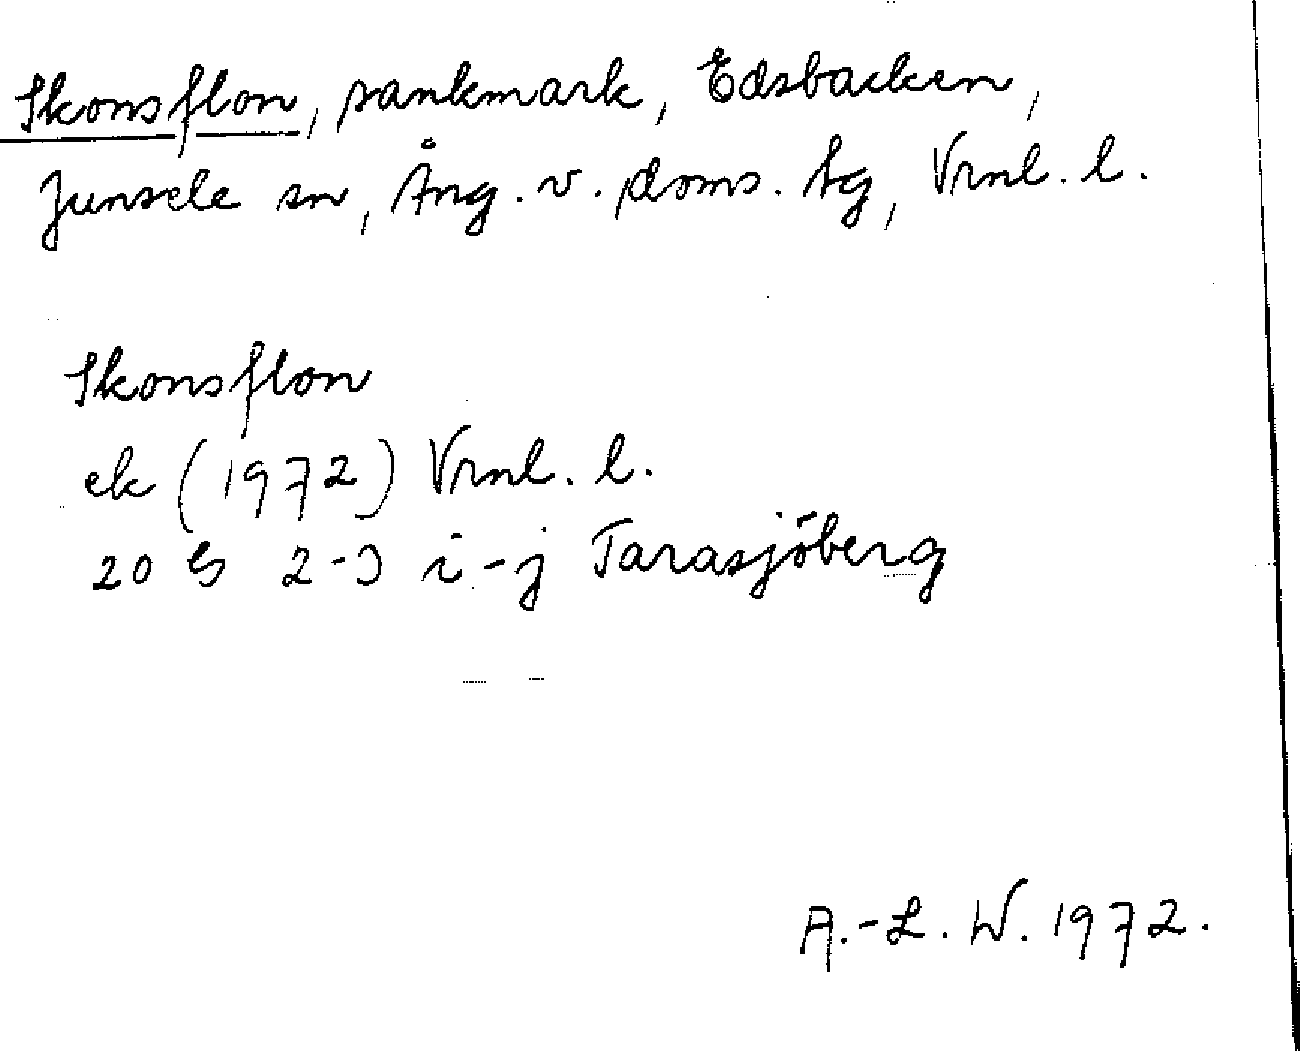 Skonsflon, sankmark, Edsbacken,
Junsele sn, Ång. v. doms. tg, Vrnl. l.
Skonsflon
ek (1972) Vrnl. l.
20 G 2-3 i-j Tarasjöberg
A.-L. W. 1972.